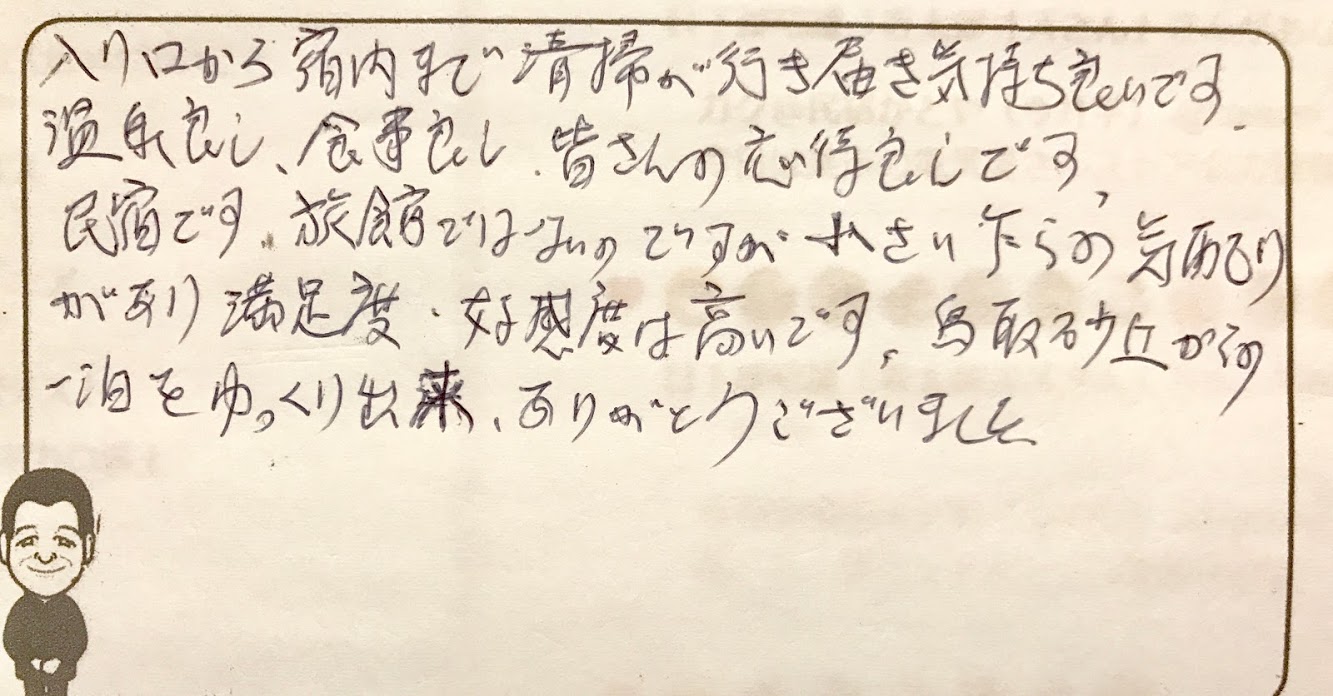 入り口から宿内まで清掃が行き届き気持ち良いです。
温泉良し、食事良し、皆さんの応待良しです、
民宿です。旅館ではないのですが小さいながらの気配り
があり満足度・好感度は高いです。鳥取砂丘からの
一泊をゆっくり出来、ありがとうございました